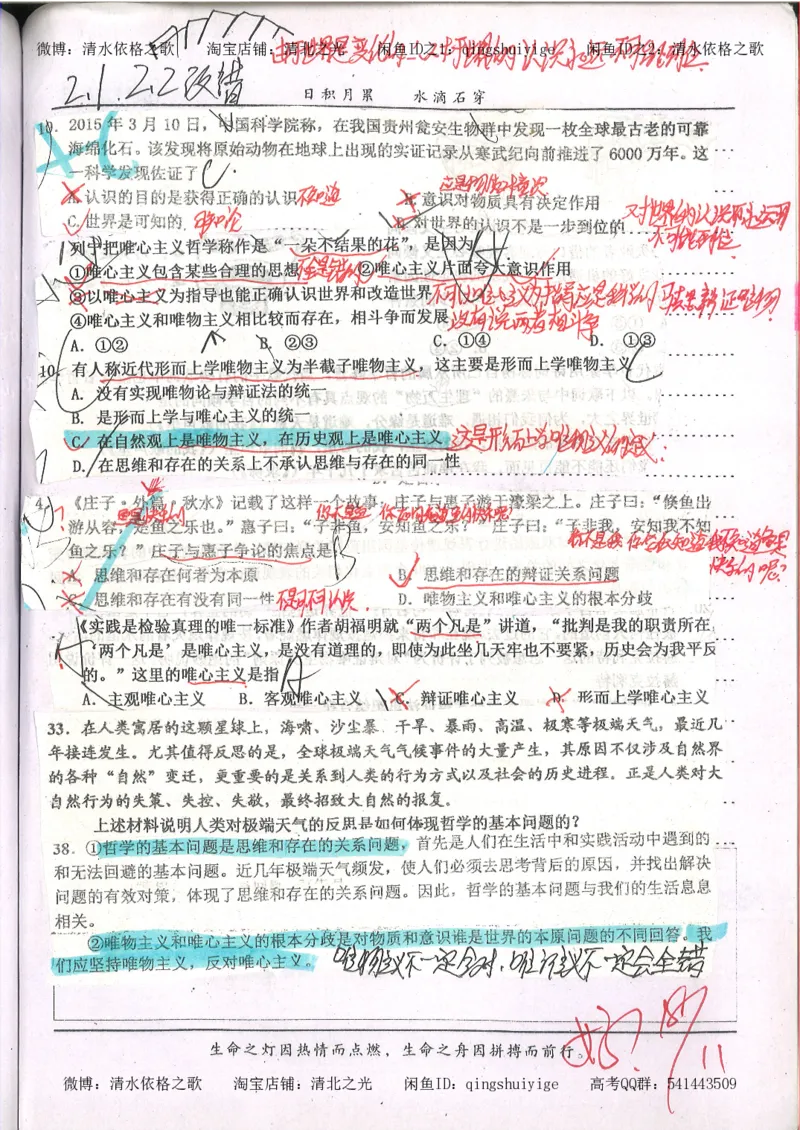 微博：清水依格之歌 淘宝店铺：清北之光 闲鱼ID之1：qingshuiyige 闲鱼ID之2：清水依格之歌
2.1.2.2改错
日积月累 水滴石穿
10．2015年3月10日，中国科学院称，在我国贵州瓮安生物群中发现一枚全球最古老的可靠
海绵化石。该发现将原始动物在地球上出现的实证记录从寒武纪向前推进了6000万年。这
一科学发现佐证了 C
应是物质决定
A.认识的目的是获得正确的认识 B.意识对物质具有决定作用
C.世界是可知的 D.对世界的认识不是一步到位的
列中把唯心主义哲学称作是“一朵不结果的花”，是因为 A
①唯心主义包含某些合理的思想 ②唯心主义片面夸大意识作用
③以唯心主义为指导也能正确认识世界和改造世界
④唯心主义和唯物主义相比较而存在，相斗争而发展 没有说两者相斗争
A．①② B．②③ C．①④ D．①③
10．有人称近代形而上学唯物主义为半截子唯物主义，这主要是形而上学唯物主义 C
A．没有实现唯物论与辩证法的统一
B．是形而上学与唯心主义的统一
C．在自然观上是唯物主义，在历史观上是唯心主义 这是形而上学唯物主义的缺点：
D．在思维和存在的关系上不承认思维与存在的同一性
4．《庄子·外篇·秋水》记载了这样一个故事，庄子与惠子游于濠梁之上。庄子曰：“倏鱼出
游从容，是鱼之乐也。”惠子曰：“子非鱼，安知鱼之乐？”庄子曰：“子非我，安知我不知
鱼之乐？”庄子与惠子争论的焦点是 B
A．思维和存在何者为本原 B．思维和存在的辩证关系问题
C．思维和存在有没有同一性 是可不可认识. D．唯物主义和唯心主义的根本分歧
《实践是检验真理的唯一标准》作者胡福明就“两个凡是”讲道，“批判是我的职责所在
‘两个凡是’是唯心主义，是没有道理的，即使为此坐几天牢也不要紧，历史会为我平反
的。”这里的唯心主义是指 A
A．主观唯心主义 B．客观唯心主义 C．辩证唯心主义 D．形而上学唯心主义
33．在人类寓居的这颗星球上，海啸、沙尘暴、干旱、暴雨、高温、极寒等极端天气，最近几
年接连发生。尤其值得反思的是，全球极端天气气候事件的大量产生，其原因不仅涉及自然界
的各种“自然”变迁，更重要的是关系到人类的行为方式以及社会的历史进程。正是人类对大
自然行为的失策、失控、失敬，最终招致大自然的报复。
上述材料说明人类对极端天气的反思是如何体现哲学的基本问题的？
38．①哲学的基本问题是思维和存在的关系问题，首先是人们在生活中和实践活动中遇到的
和无法回避的基本问题。近几年极端天气频发，使人们必须去思考背后的原因，并找出解决
问题的有效对策，体现了思维和存在的关系问题。因此，哲学的基本问题与我们的生活息息
相关。
②唯物主义和唯心主义的根本分歧是对物质和意识谁是世界的本原问题的不同回答。我
们应坚持唯物主义，反对唯心主义。 唯物主义不一定全对，唯心主义不一定会全错
生命之灯因热情而点燃，生命之舟因拼搏而前行。
微博：清水依格之歌 淘宝店铺：清北之光 闲鱼ID：qingshuiyige 高考QQ群：541443509